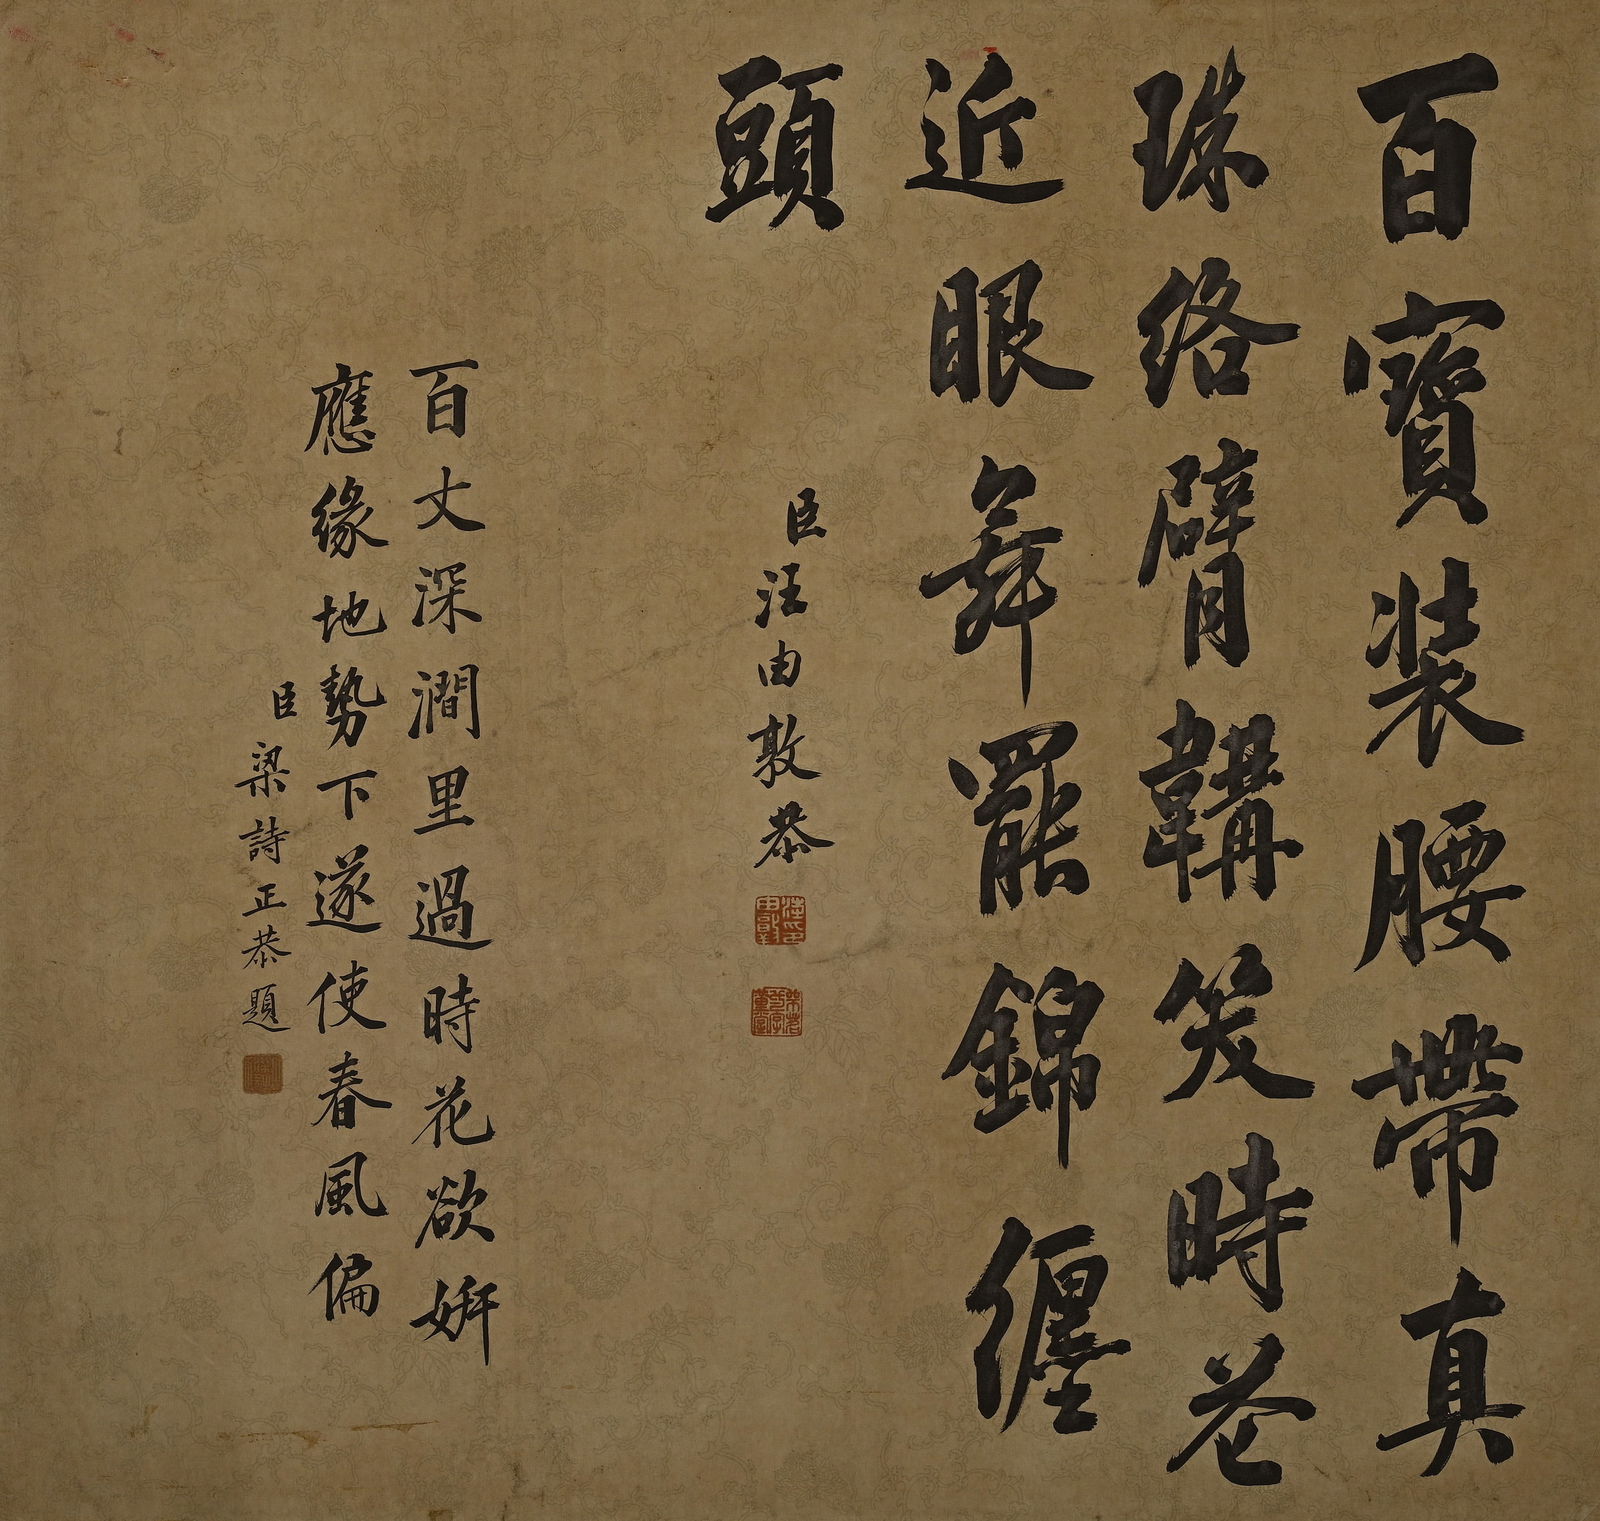 百寶装腰帶真
珠絡臂韝笑時花
近眼舞罷錦纏
頭
臣汪由敦恭
汪印由敦
百丈深澗里過時花欲妍
應緣地勢下遂使春風偏
臣梁詩正恭題